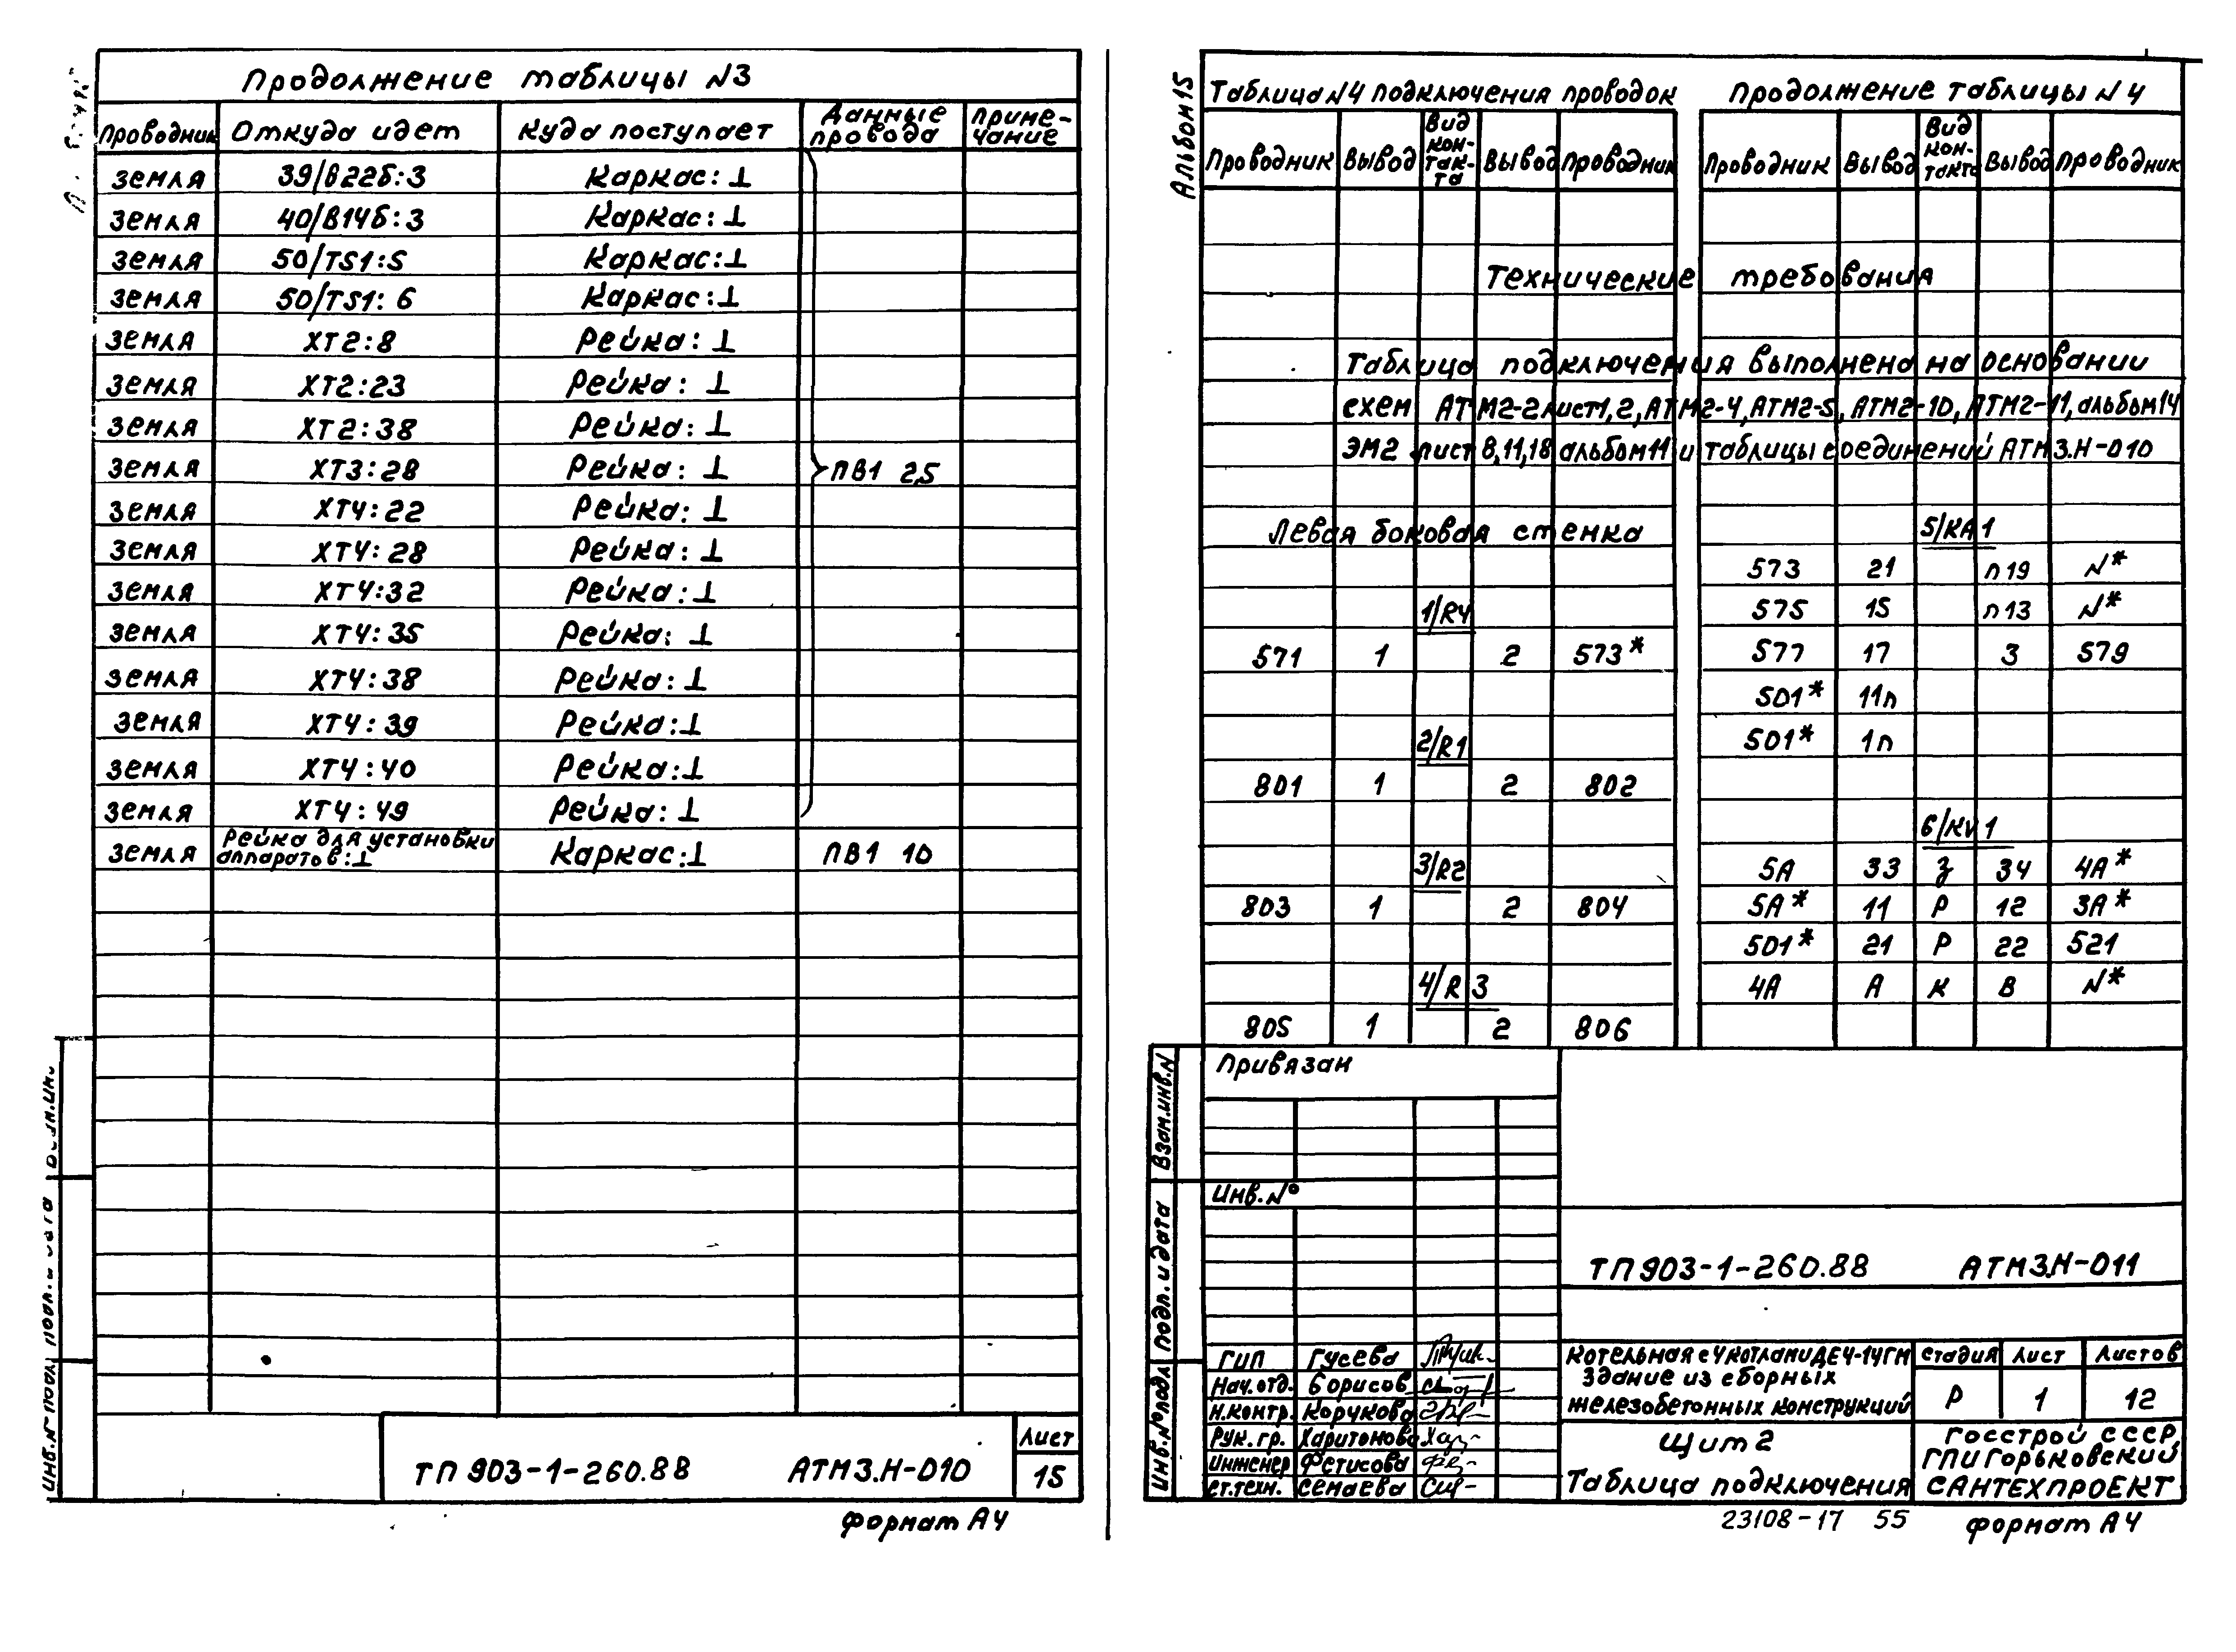 Продолжение таблицы №3
Проводник Откуда идет Куда поступает Данные провода Примечание
земля 39/В22б:3 Каркас:⊥
земля 40/В14б:3 Каркас:⊥
земля 50/TS1:5 Каркас:⊥
земля 50/TS1:6 Каркас:⊥
земля ХТ2:8 Рейка:⊥
земля ХТ2:23 Рейка:⊥
земля ХТ2:38 Рейка:⊥
земля ХТ3:28 Рейка:⊥ ПВ1 2,5
земля ХТ4:22 Рейка:⊥
земля ХТ4:28 Рейка:⊥
земля ХТ4:32 Рейка:⊥
земля ХТ4:35 Рейка:⊥
земля ХТ4:38 Рейка:⊥
земля ХТ4:39 Рейка:⊥
земля ХТ4:40 Рейка:⊥
земля ХТ4:49 Рейка:⊥
земля Рейка для установки аппаратов:⊥ Каркас:⊥ ПВ1 10
Инв.№ подл.
ТП 903-1-260.88 АТМ3.Н-010
Лист
15
Формат А4
Альбом 15
Таблица №4 подключения проводок
Проводник Вывод Вид контакта Вывод Проводник
Левая боковая стенка
1/R4
571 1 2 573*
2/R1
801 1 2 802
3/R2
803 1 2 804
4/R3
805 1 2 806
Продолжение таблицы №4
Проводник Вывод Вид контакта Вывод Проводник
Технические требования
Таблица подключения выполнена на основании
схем АТМ2-2 лист1,2, АТМ2-4, АТМ2-5, АТМ2-10, АТМ2-11, альбом 14
ЭМ2 лист 8,11,18 альбом 11 и таблицы соединений АТМ3.Н-010
5/КА1
573 21 п19 N*
575 15 п13 N*
577 17 3 579
501* 11п
501* 1п
6/KV1
5А 33 з 34 4А*
5А* 11 Р 12 3А*
501* 21 Р 22 521
4А А К В N*
Привязан
Инв.№
Взам.инв.№
Подп. и дата
Инв.№ подл
ТП 903-1-260.88 АТМ3.Н-011
ГИП Гусева
Нач.отд. Борисов
Н.контр. Корчкова
Рук.гр. Харитонова
Инженер Фетисова
Ст.техн. Семаева
Котельная с 4 котлами ДЕ4-14ГМ
Здание из сборных
железобетонных конструкций
Стадия Лист Листов
Р 1 12
Щит 2
Таблица подключения
Госстрой СССР
ГПИ Горьковский
САНТЕХПРОЕКТ
23108-17 55
Формат А4